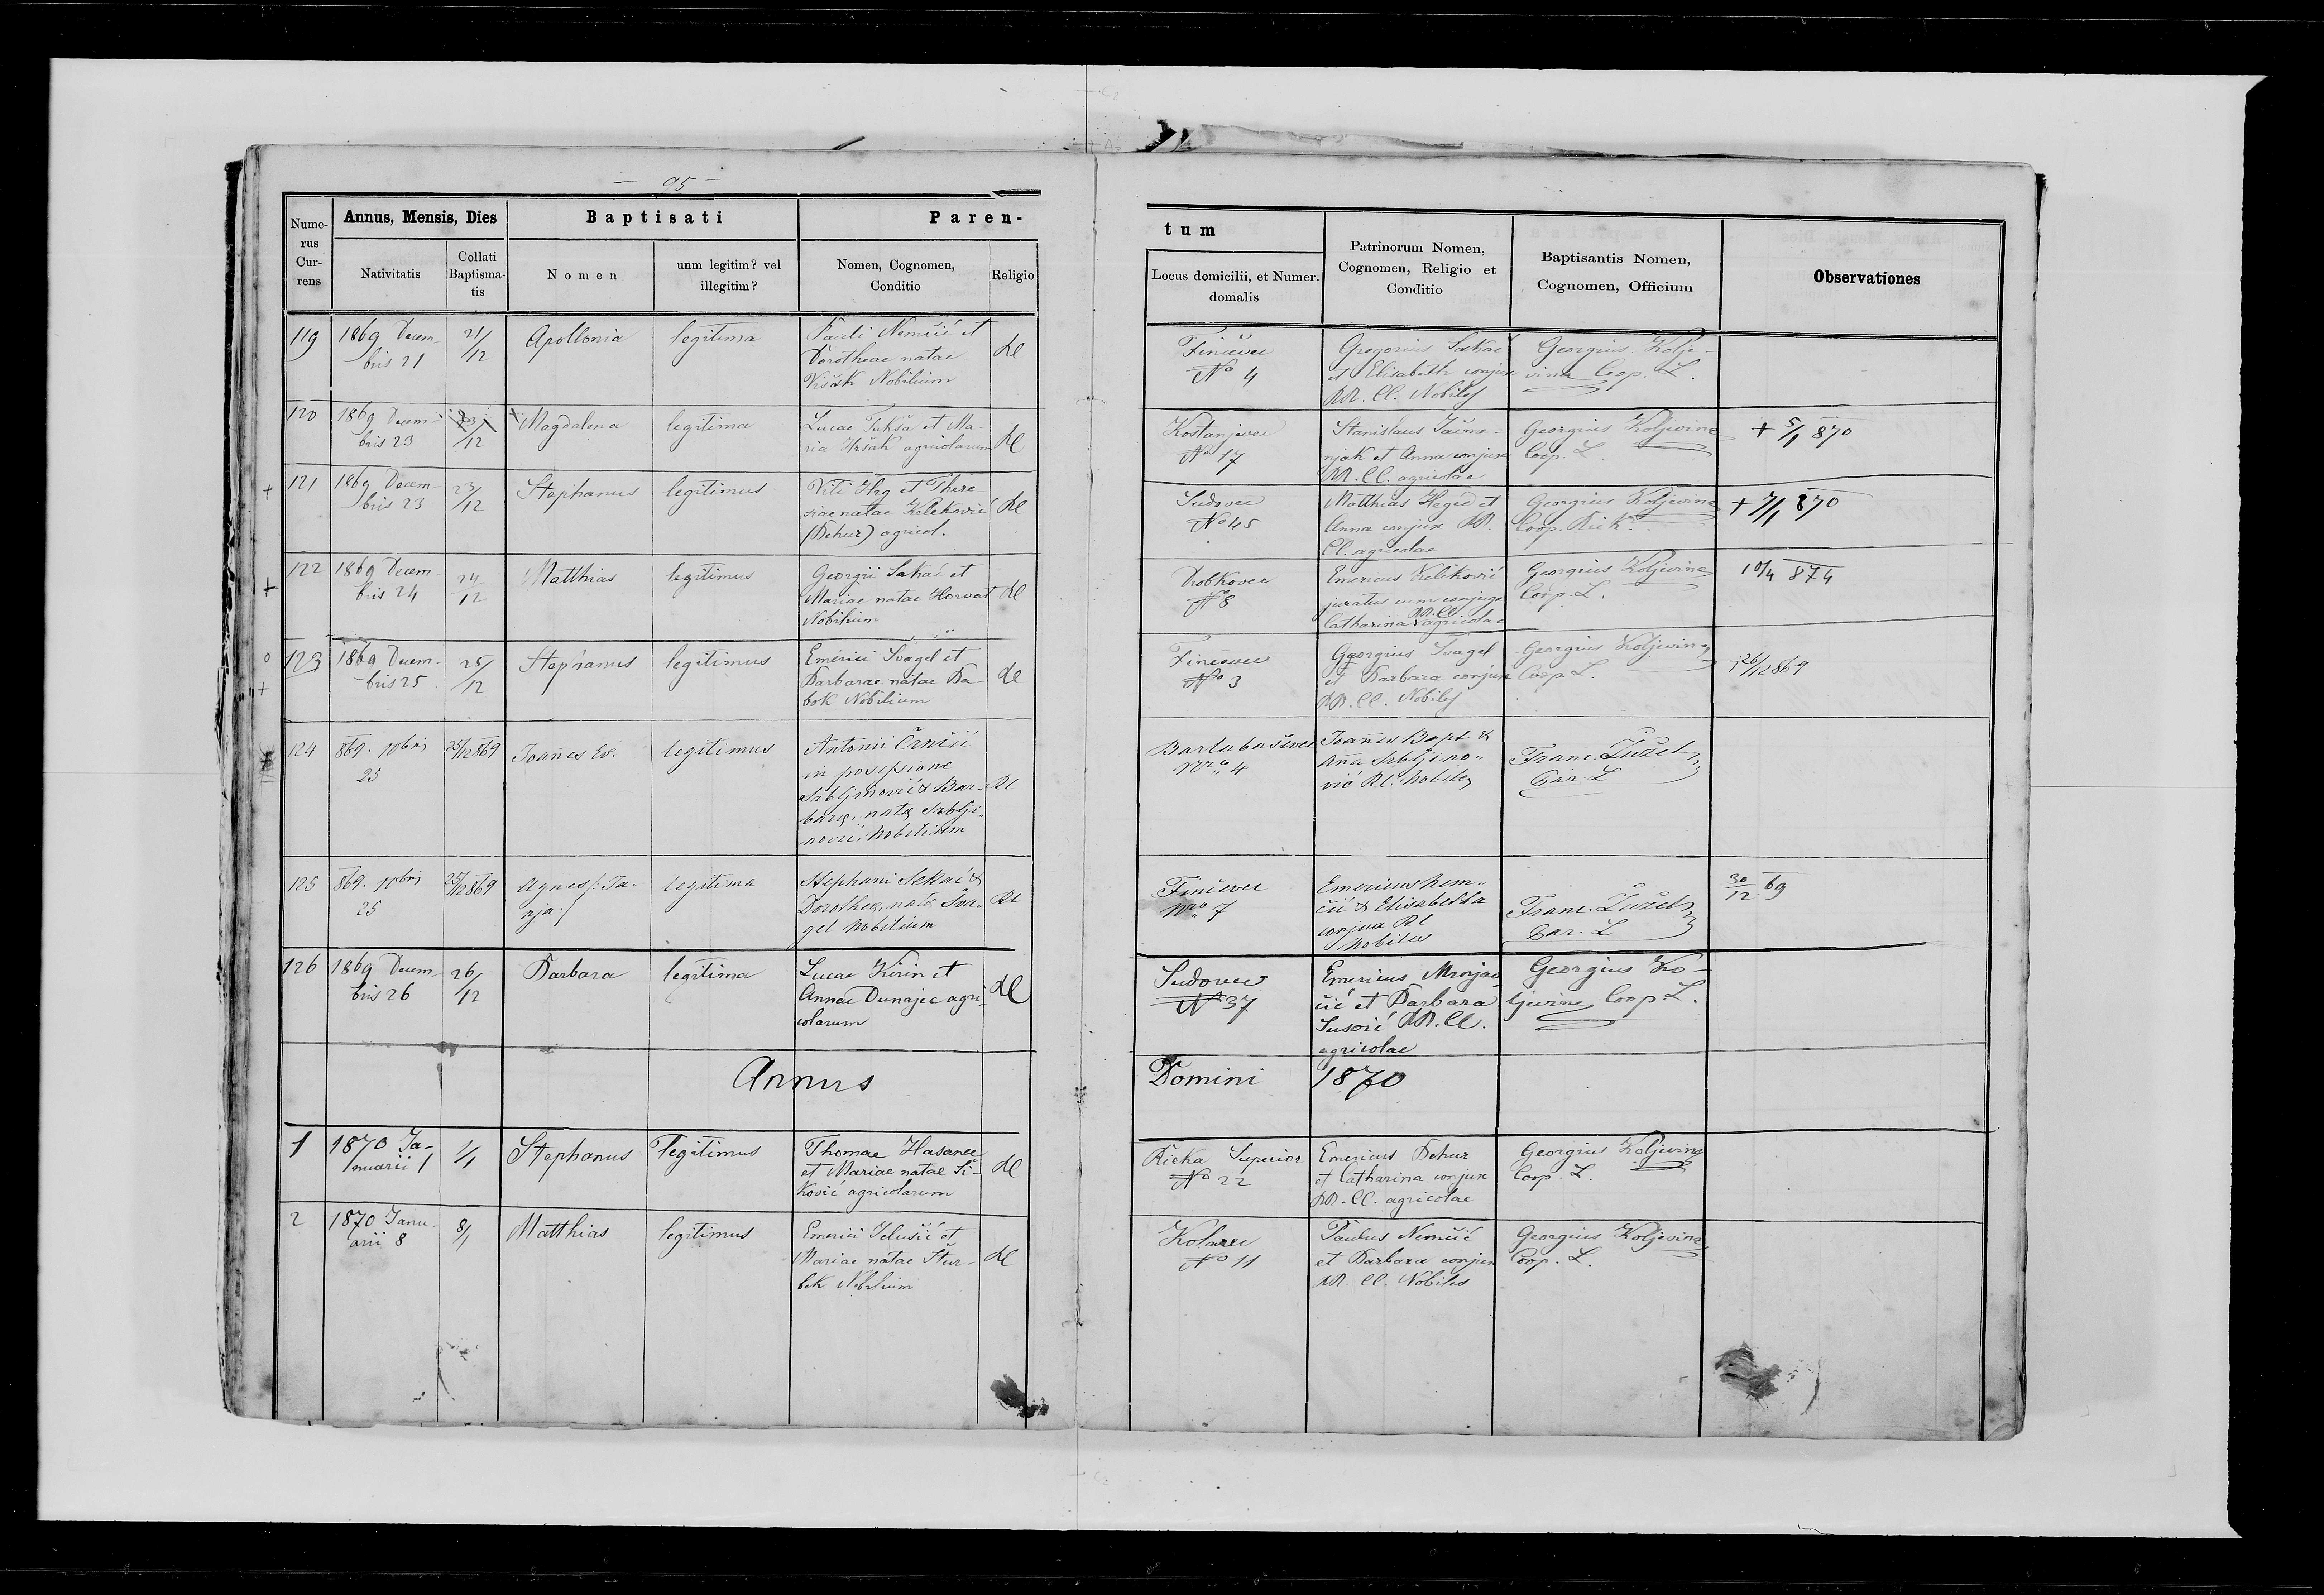 — 95 —
Nume-
rus
Cur-
rens
Annus, Mensis, Dies
Nativitatis
Collati
Baptisma-
tis
Baptisati
Nomen
unm legitim? vel
illegitim?
Paren-
Nomen, Cognomen,
Conditio
Religio
tum
Locus domicilii, et Numer.
domalis
Patrinorum Nomen,
Cognomen, Religio et
Conditio
Baptisantis Nomen,
Cognomen, Officium
Observationes
119
1869 Decem-
bris 21
21/12
Apollonia
legitima
Pauli Nemčić et
Dorotheae natae
Nobilium
Rl
Finčevec
No 4
Gregorius Sakač
et Elisabeth conjux
RR. CC. Nobiles
Georgius Kolje-
vina Coop. L.
120
1869 Decem-
bris 23
23/12
Magdalena
legitima
Lucae Tukša et Ma-
ria Hršak agricolarum
Rl
Kostanjevec
No 17
Stanislaus Jačme-
njak et Anna conjux
RR. CC. agricolae
Georgius Koljevina
Coop. L.
+ 5/1 870
121
1869 Decem-
bris 23
23/12
Stephanus
legitimus
Viti Hrg et There-
siae natae Keleković
(Dehur) agricol.
Rl
Sudovec
No 45
Matthias Heged et
Anna conjux RR.
CC. agricolae
Georgius Koljevina
Coop.
+ 7/1 870
122
1869 Decem-
bris 24
24/12
Matthias
legitimus
Georgii Sakač et
Mariae natae Horvat
Nobilium
Rl
Drobkovec
No 8
Emericus Keleković
juratus cum conjuge
Catharina RR. CC. agricolae
Georgius Koljevina
Coop. L.
10/4 874
123
1869 Decem-
bris 25
25/12
Stephanus
legitimus
Emerici Švagel et
Barbarae natae Ba-
bok Nobilium
Rl
Finčevec
No 3
Georgius Švagel
et Barbara conjux
RR. CC. Nobiles
Georgius Koljevina
Coop. L.
+ 26/12 869
124
869. 10bris
25
25/12 869
Joannes Ev.
legitimus
Antonii Črnčić
in possessione
Srbljinović & Bar-
barae, natae Srblji-
nović, Nobilium
Rl
Bartolovčevec
Nro 4
Joannes Bapt. &
Anna Srbljino-
vić Rl. Nobiles
Franc. Žužel
Par. L
125
869. 10bris
25
25/12 869
Agnes /: Ja-
nja :/
legitima
Stephani Sekač &
Dorotheae, natae Šva-
gel Nobilium
Rl
Finčevec
Nro 7
Emericus Nem-
čić & Elisabetha
conjux Rl
Nobiles
Franc. Žužel
Par. L
30/12 69
126
1869 Decem-
bris 26
26/12
Barbara
legitima
Lucae Kirin et
Annae Dunajec agri-
colarum
Rl
Sudovec
No 37
Emericus Mrnjav-
čić et Barbara
Susović RR. CC.
agricolae
Georgius Ko-
ljevina Coop. L.
Annus Domini 1870
1
1870 Ja-
nuarii 1
1/1
Stephanus
legitimus
Thomae Hasanec
et Mariae natae Ši-
ković agricolarum
Rl
Rieka Superior
No 22
Emericus Dehur
et Catharina conjux
RR. CC. agricolae
Georgius Koljevina
Coop. L.
2
1870 Janu-
arii 8
8/1
Matthias
legitimus
Emerici Jelušić et
Mariae natae Štur-
bek Nobilium
Rl
Kolarec
No 11
Paulus Nemčić
et Barbara conjux
RR. CC. Nobiles
Georgius Koljevina
Coop. L.